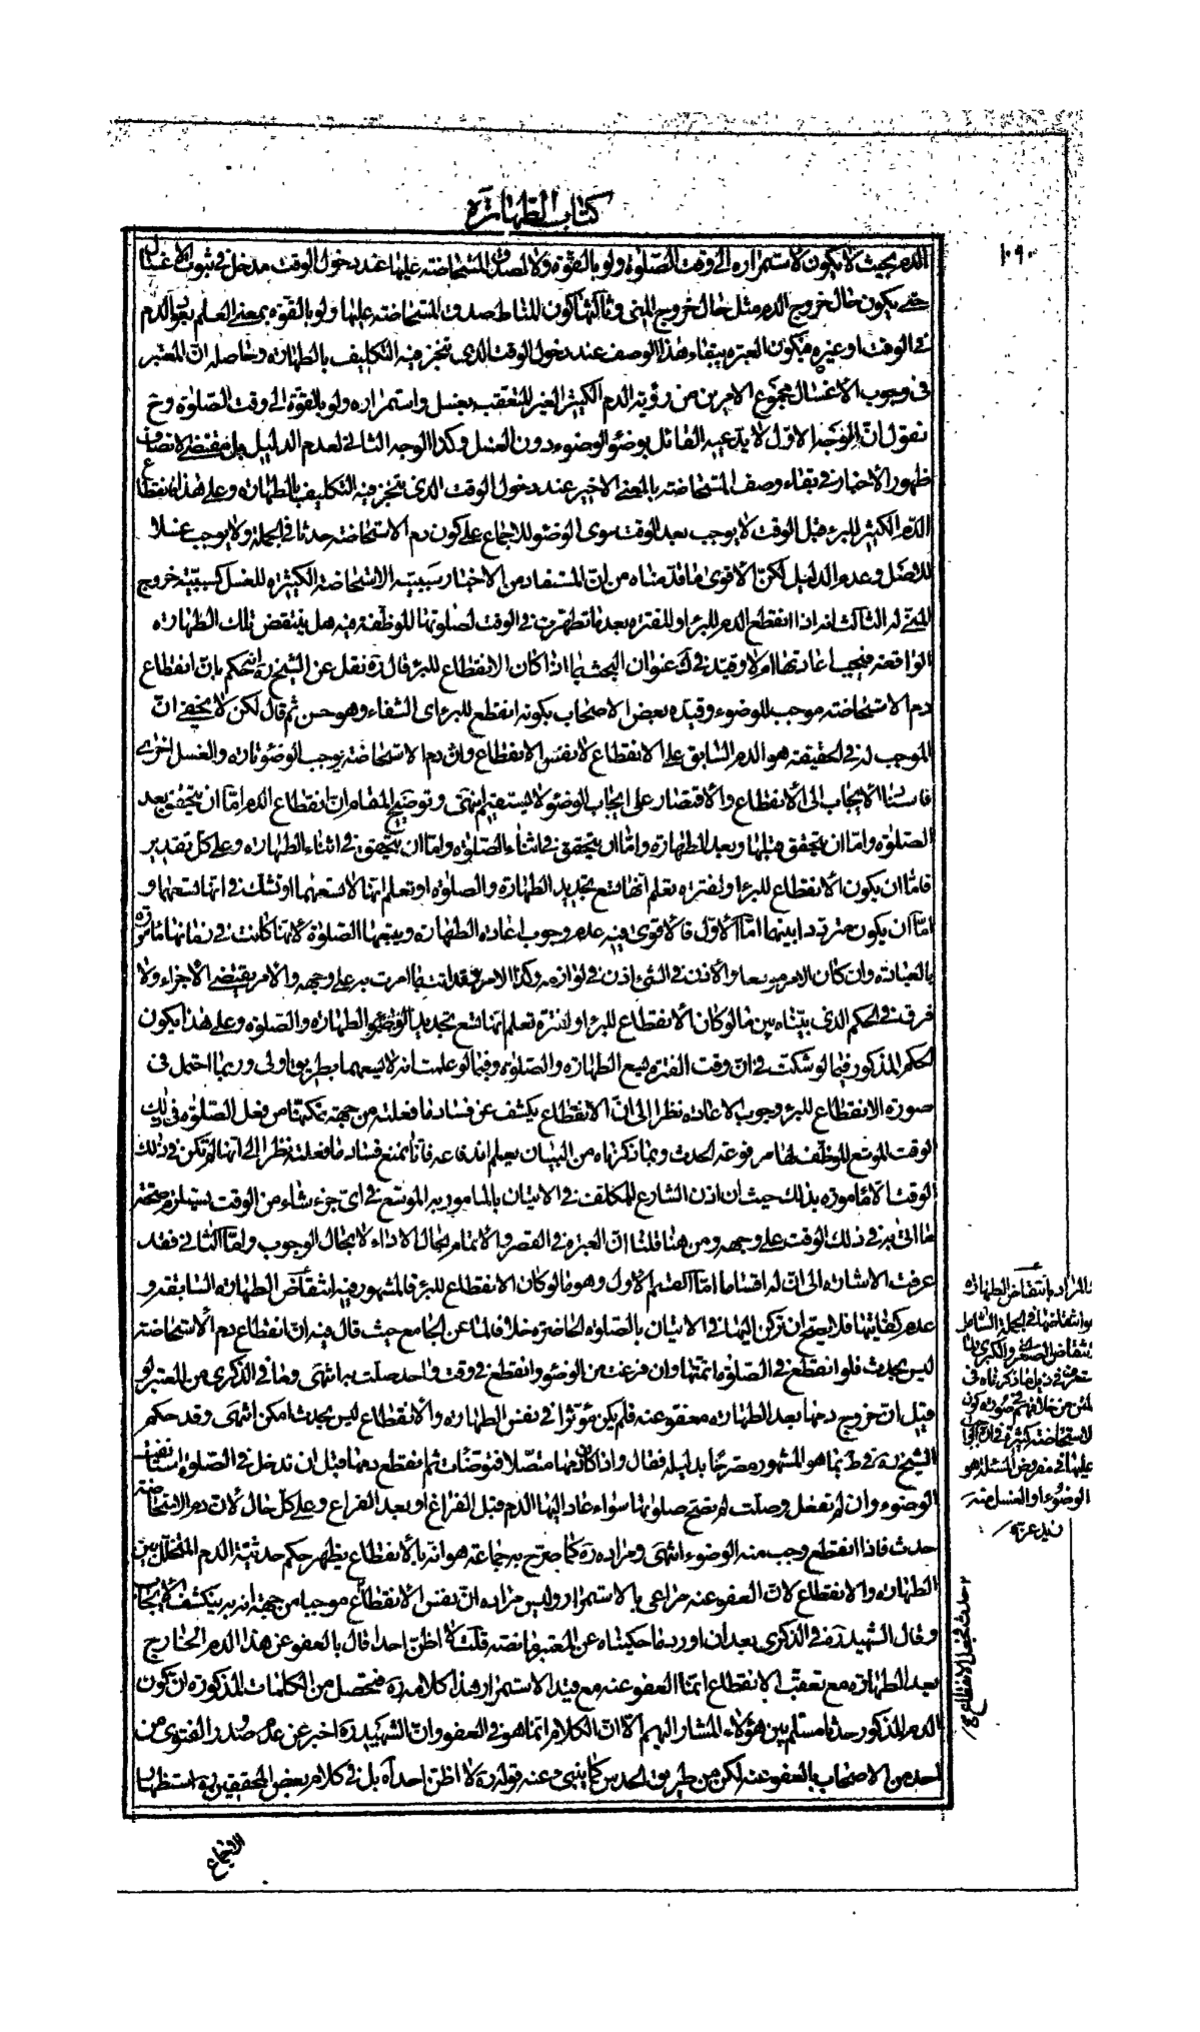 كتاب الطهارة
١٠٩٠
الدم بحيث لا يكون لاستمراره الى وقت الصلوة ولو بالقوة ولا لصدق المستحاضة عليها عند دخول الوقت مدخل في ثبوت الاغتسال
حتى يكون حال خروج الدم مثل حال خروج المنى وثالثها كون المناط صدق المستحاضة عليها ولو بالقوة بمعنى العلم بعود الدم
في الوقت او غيره فيكون العبرة ببقاء هذا الوصف عند دخول الوقت الذي تنجز فيه التكليف بالطهارة وحاصله ان المعتبر
في وجوب الاغسال مجموع الامرين من رؤية الدم الكثير الغير المتعقب بغسل واستمراره ولو بالقوة الى وقت الصلوة وح
نقول ان الوجه الاول لا يدعيه القائل بوضوء الوضوء دون الغسل وكذا الوجه الثاني لعدم الدليل بل مقتضى الانصاف
ظهور الاخبار في بقاء وصف المستحاضة بالمعنى الاخير عند دخول الوقت الذي يتنجز فيه التكليف بالطهارة وعلى هذا فانقطاع
الدم الكثير للبرء قبل الوقت لا يوجب بعد الوقت سوى الوضوء للاجماع على كون دم الاستحاضة حدثا في الجملة ولا يوجب غسلا
للاصل وعدم الدليل لكن الاقوى ما قدمناه من ان المستفاد من الاخبار سببية الاستحاضة الكثيرة للغسل كسببية خروج
المني له الثالث انه اذا انقطع الدم للبرء او للفترة بعد ما تطهرت في الوقت لصلوتها الموظفة فيه هل ينتقض تلك الطهارة
الواقعة فيجب اعادتها ام لا وقيد في ك عنوان البحث بما اذا كان الانقطاع للبرء قال ره نقل عن الشيخ ره انه حكم بان انقطاع
دم الاستحاضة موجب للوضوء وقيده بعض الاصحاب بكونه انقطع للبرء اى الشفاء وهو حسن ثم قال لكن لا يخفى ان
الموجب له في الحقيقة هو الدم السابق على الانقطاع لا نفس الانقطاع وان دم الاستحاضة يوجب الوضوء تارة والغسل اخرى
فاسناد الايجاب الى الانقطاع والاقتصار على ايجاب الوضوء لا يستقيم انتهى وتوضيح المقام ان انقطاع الدم اما ان يتحقق بعد
الصلوة واما ان يتحقق قبلها وبعد الطهارة واما ان يتحقق في اثناء الصلوة واما ان يتحقق في اثناء الطهارة وعلى كل تقدير
فاما ان يكون الانقطاع للبرء او لفترة تعلم انها تسع بتجديد الطهارة والصلوة او تعلم انها لا تسعهما او تشك في انها تسعهما و
اما ان يكون مترددا بينهما اما الاول فالاقوى فيه عدم وجوب اعادة الطهارة ويتبعها الصلوة لانها كانت في زمانها مامورة
بالعبادة وان كان الامر موسعا والاذن في الشئ اذن في لوازمه وكذا الامر فقد اتت بما امرت به على وجهه والامر يقتضى الاجزاء ولا
فرق في الحكم الذي بيناه بين ما لو كان الانقطاع للبرء او لفترة تعلم انها تسع تجديد الطهارة والصلوة وعلى هذا يكون
الحكم المذكور فيما لو شكت في ان وقت الفترة يسع الطهارة والصلوة وفيما لو علمت انه لا يسعهما بطريق اولى وربما احتمل في
صورة الانقطاع للبرء وجوب الاعادة نظرا الى ان الانقطاع يكشف عن فساد ما فعلته من جهة تمكنها من فعل الصلوة في ذلك
الوقت الموسع الموظف لها مرفوعة الحدث وبما ذكرناه من البيان يعلم اندفاعه فانا نمنع فساد ما فعلته نظرا الى انها لم تكن في ذلك
الوقت الا مامورة بذلك حيث ان اذن الشارع للمكلف في الاتيان بالمامور به الموسع في اى جزء شاء من الوقت يستلزم صحة
ما اتى به في ذلك الوقت على وجهه ومن هنا قلنا ان العبرة في القصر والاتمام بحال الاداء لا بحال الوجوب واما الثاني فقد
عرفت الاشارة الى ان له اقساما اما القسم الاول وهو ما لو كان الانقطاع للبرء فالمشهور فيه انتقاض الطهارة السابقة و
عدم كفايتها فلا يصح ان تركن اليها في الاتيان بالصلوة الحاضرة خلافا لما عن الجامع حيث قال فيه ان انقطاع دم الاستحاضة
ليس بحدث فلو انقطع في الصلوة اتمتها وان فرغت من الوضوء وانقطع في وقت واحد صلت به انتهى وما في الذكرى من المعتبر لو
قيل ان خروج دمها بعد الطهارة معفو عنه فلم يكن مؤثرا في نقض الطهارة والانقطاع ليس بحدث امكن انتهى وقد حكم
الشيخ ره في ط بما هو المشهور مصرحا بدليله فقال واذا كان دمها متصلا فتوضات ثم انقطع دمها قبل ان تدخل في الصلوة استانفت
الوضوء وان لم تفعل وصلت لم تصح صلوتها سواء عاد اليها الدم قبل الفراغ او بعد الفراغ وعلى كل حال لان دم الاستحاضة
حدث فاذا انقطع وجب منه الوضوء انتهى ومراده ره كما صرح به جماعة هو انه بالانقطاع يظهر حكم حدثية الدم المتخلل بين
الطهارة والانقطاع لان العفو عنه مراعى بالاستمرار وليس مراده ان نفس الانقطاع موجب من جهة انه به ينكشف الايجاب
وقال الشهيد ره في الذكرى بعد ان اورد ما حكيناه عن المعتبر ما نصه قلت لا اظن احدا قال بالعفو عن هذا الدم الخارج
بعد الطهارة مع تعقب الانقطاع انما العفو عنه مع قيد الاستمرار هذا كلامه ره فتحصل من الكلمات المذكورة ان كون
الدم المذكور حدثا مسلم بين هؤلاء المشار اليهم الا ان الكلام انما هو في العفو وان الشهيد ره اخبر عن عدم صدور الفتوى من
احد من الاصحاب بالعفو عنه لكن من طريق الحدس كما ينبئ عنه قوله ره لا اظن احدا اه بل في كلام بعض المحققين ره استظهار
الاجماع
المراد بانتقاض الطهارة
هو انتقاضها في الجملة الشامل
لانتقاض الصغرى والكبرى لما
ستعرف في ذيل ما ذكرناه في
المتن من خلافهم في صورة كون
الاستحاضة كثيرة في ان الواجب
عليها في مفروض المسئلة هو
الوضوء او الغسل منه